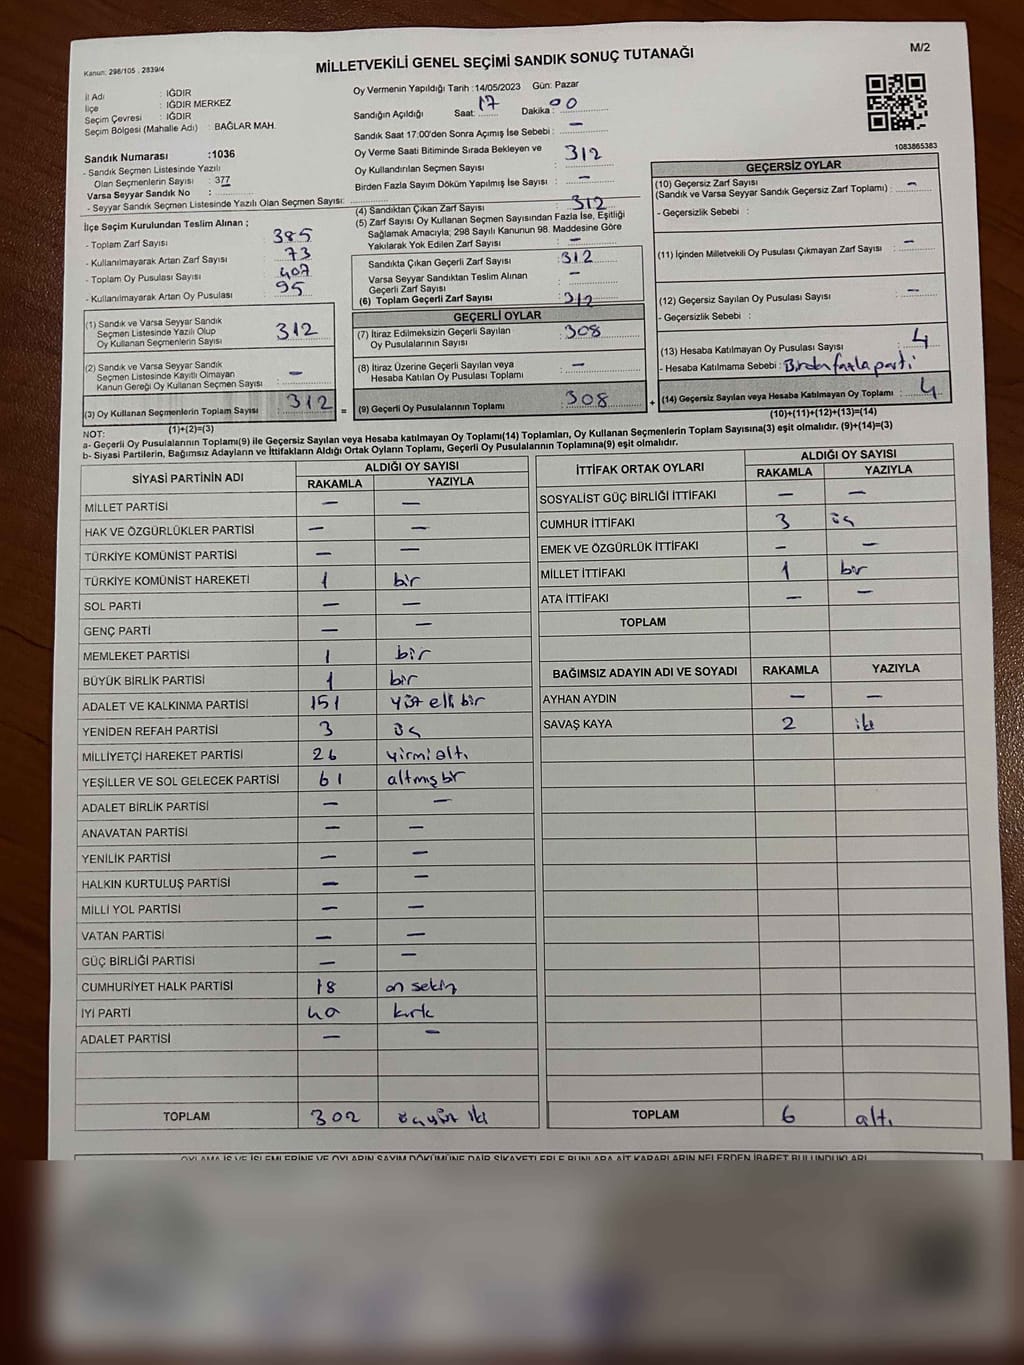 Kanun: 298/105 . 2839/4
MİLLETVEKİLİ GENEL SEÇİMİ SANDIK SONUÇ TUTANAĞI
M/2
İl Adı : IĞDIR
İlçe : IĞDIR MERKEZ
Seçim Çevresi : IĞDIR
Seçim Bölgesi (Mahalle Adı) : BAĞLAR MAH.
Sandık Numarası :1036
- Sandık Seçmen Listesinde Yazılı
Olan Seçmenlerin Sayısı : 377
Varsa Seyyar Sandık No :
- Seyyar Sandık Seçmen Listesinde Yazılı Olan Seçmen Sayısı:
İlçe Seçim Kurulundan Teslim Alınan ;
- Toplam Zarf Sayısı 385
- Kullanılmayarak Artan Zarf Sayısı 73
- Toplam Oy Pusulası Sayısı 407
- Kullanılmayarak Artan Oy Pusulası 95
(1) Sandık ve Varsa Seyyar Sandık
Seçmen Listesinde Yazılı Olup
Oy Kullanan Seçmenlerin Sayısı 312
(2) Sandık ve Varsa Seyyar Sandık
Seçmen Listesinde Kayıtlı Olmayan
Kanun Gereği Oy Kullanan Seçmen Sayısı -
(3) Oy Kullanan Seçmenlerin Toplam Sayısı 312
(1)+(2)=(3)
Oy Vermenin Yapıldığı Tarih :14/05/2023 Gün: Pazar
Sandığın Açıldığı Saat: 17 Dakika: 00
Sandık Saat 17:00'den Sonra Açımış İse Sebebi : -
Oy Verme Saati Bitiminde Sırada Bekleyen ve
Oy Kullandırılan Seçmen Sayısı 312
Birden Fazla Sayım Döküm Yapılmış İse Sayısı : -
(4) Sandıktan Çıkan Zarf Sayısı 312
(5) Zarf Sayısı Oy Kullanan Seçmen Sayısından Fazla İse, Eşitliği
Sağlamak Amacıyla; 298 Sayılı Kanunun 98. Maddesine Göre
Yakılarak Yok Edilen Zarf Sayısı -
Sandıkta Çıkan Geçerli Zarf Sayısı 312
Varsa Seyyar Sandıktan Teslim Alınan
Geçerli Zarf Sayısı -
(6) Toplam Geçerli Zarf Sayısı 312
GEÇERLİ OYLAR
(7) İtiraz Edilmeksizin Geçerli Sayılan
Oy Pusulalarının Sayısı 308
(8) İtiraz Üzerine Geçerli Sayılan veya
Hesaba Katılan Oy Pusulası Toplamı -
= (9) Geçerli Oy Pusulalarının Toplamı 308
1083865383
GEÇERSİZ OYLAR
(10) Geçersiz Zarf Sayısı
(Sandık ve Varsa Seyyar Sandık Geçersiz Zarf Toplamı) : -
- Geçersizlik Sebebi :
(11) İçinden Milletvekili Oy Pusulası Çıkmayan Zarf Sayısı -
(12) Geçersiz Sayılan Oy Pusulası Sayısı -
- Geçersizlik Sebebi :
(13) Hesaba Katılmayan Oy Pusulası Sayısı 4
- Hesaba Katılmama Sebebi : Birden fazla parti
+ (14) Geçersiz Sayılan veya Hesaba Katılmayan Oy Toplamı : 4
(10)+(11)+(12)+(13)=(14)
NOT:
a- Geçerli Oy Pusulalarının Toplamı(9) ile Geçersiz Sayılan veya Hesaba katılmayan Oy Toplamı(14) Toplamları, Oy Kullanan Seçmenlerin Toplam Sayısına(3) eşit olmalıdır. (9)+(14)=(3)
b- Siyasi Partilerin, Bağımsız Adayların ve İttifakların Aldığı Ortak Oyların Toplamı, Geçerli Oy Pusulalarının Toplamına(9) eşit olmalıdır.
SİYASİ PARTİNİN ADI ALDIĞI OY SAYISI
RAKAMLA YAZIYLA
MİLLET PARTİSİ - -
HAK VE ÖZGÜRLÜKLER PARTİSİ - -
TÜRKİYE KOMÜNİST PARTİSİ - -
TÜRKİYE KOMÜNİST HAREKETİ 1 bir
SOL PARTİ - -
GENÇ PARTİ - -
MEMLEKET PARTİSİ 1 bir
BÜYÜK BİRLİK PARTİSİ 1 bir
ADALET VE KALKINMA PARTİSİ 151 yüz elli bir
YENİDEN REFAH PARTİSİ 3 üç
MİLLİYETÇİ HAREKET PARTİSİ 26 yirmi altı
YEŞİLLER VE SOL GELECEK PARTİSİ 61 altmış bir
ADALET BİRLİK PARTİSİ - -
ANAVATAN PARTİSİ - -
YENİLİK PARTİSİ - -
HALKIN KURTULUŞ PARTİSİ - -
MİLLİ YOL PARTİSİ - -
VATAN PARTİSİ - -
GÜÇ BİRLİĞİ PARTİSİ - -
CUMHURİYET HALK PARTİSİ 18 on sekiz
İYİ PARTİ 40 kırk
ADALET PARTİSİ - -
TOPLAM 302 üçyüz iki
İTTİFAK ORTAK OYLARI ALDIĞI OY SAYISI
RAKAMLA YAZIYLA
SOSYALİST GÜÇ BİRLİĞİ İTTİFAKI - -
CUMHUR İTTİFAKI 3 üç
EMEK VE ÖZGÜRLÜK İTTİFAKI - -
MİLLET İTTİFAKI 1 bir
ATA İTTİFAKI - -
TOPLAM
BAĞIMSIZ ADAYIN ADI VE SOYADI RAKAMLA YAZIYLA
AYHAN AYDIN - -
SAVAŞ KAYA 2 iki
TOPLAM 6 altı
OYLAMA İŞ VE İŞLEMLERİNE VE OYLARIN SAYIM DÖKÜMÜNE DAİR ŞİKAYETLERLE BUNLARA AİT KARARLARIN NELERDEN İBARET BULUNDUKLARI